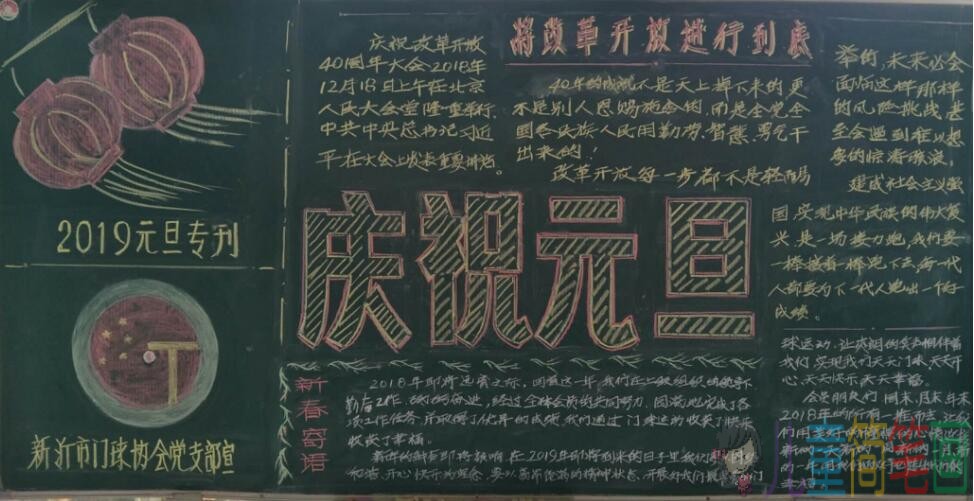 2019元旦专刊
新沂市门球协会党支部宣
庆祝改革开放
40周年大会2018年
12月18日上午在北京
人民大会堂隆重举行,
中共中央总书记习近
平在大会上发表重要讲话。
将改革开放进行到底
40年的成就不是天上掉下来的更
不是别人恩赐施舍的,而是全党全
国各民族人民用勤劳,智慧、勇气干
出来的!
改革开放每一步都不是轻
未来必会
面临这样那样
的风险挑战甚
至会遇到难以想
象的惊涛骇浪。
建成社会主义强
国,实现中华民族的伟大复
兴,是一场接力跑,我们要一
棒接着一棒跑下去,每一代
人都要为下一代人跑出一个好
成绩。
庆祝元旦
新春寄语
2018年即将过去之际,回首这一年,我们在上级组织的
勤奋工作、 的奋进,经过全体会员的共同努力、圆满地完成了各
项工作任务,并取得了优异的成绩,我们通过门球运动收获了快乐
收获了幸福。
新的一年即将到来,在2019年
和谐、开心快乐为理念,要以 的精神状态,开展好我们
球运动,让
我们,实现我们天天门球,天天开
心、天天快乐天天幸福。
会员朋友们 周末、月末、年末
2018年的
儿童简笔画